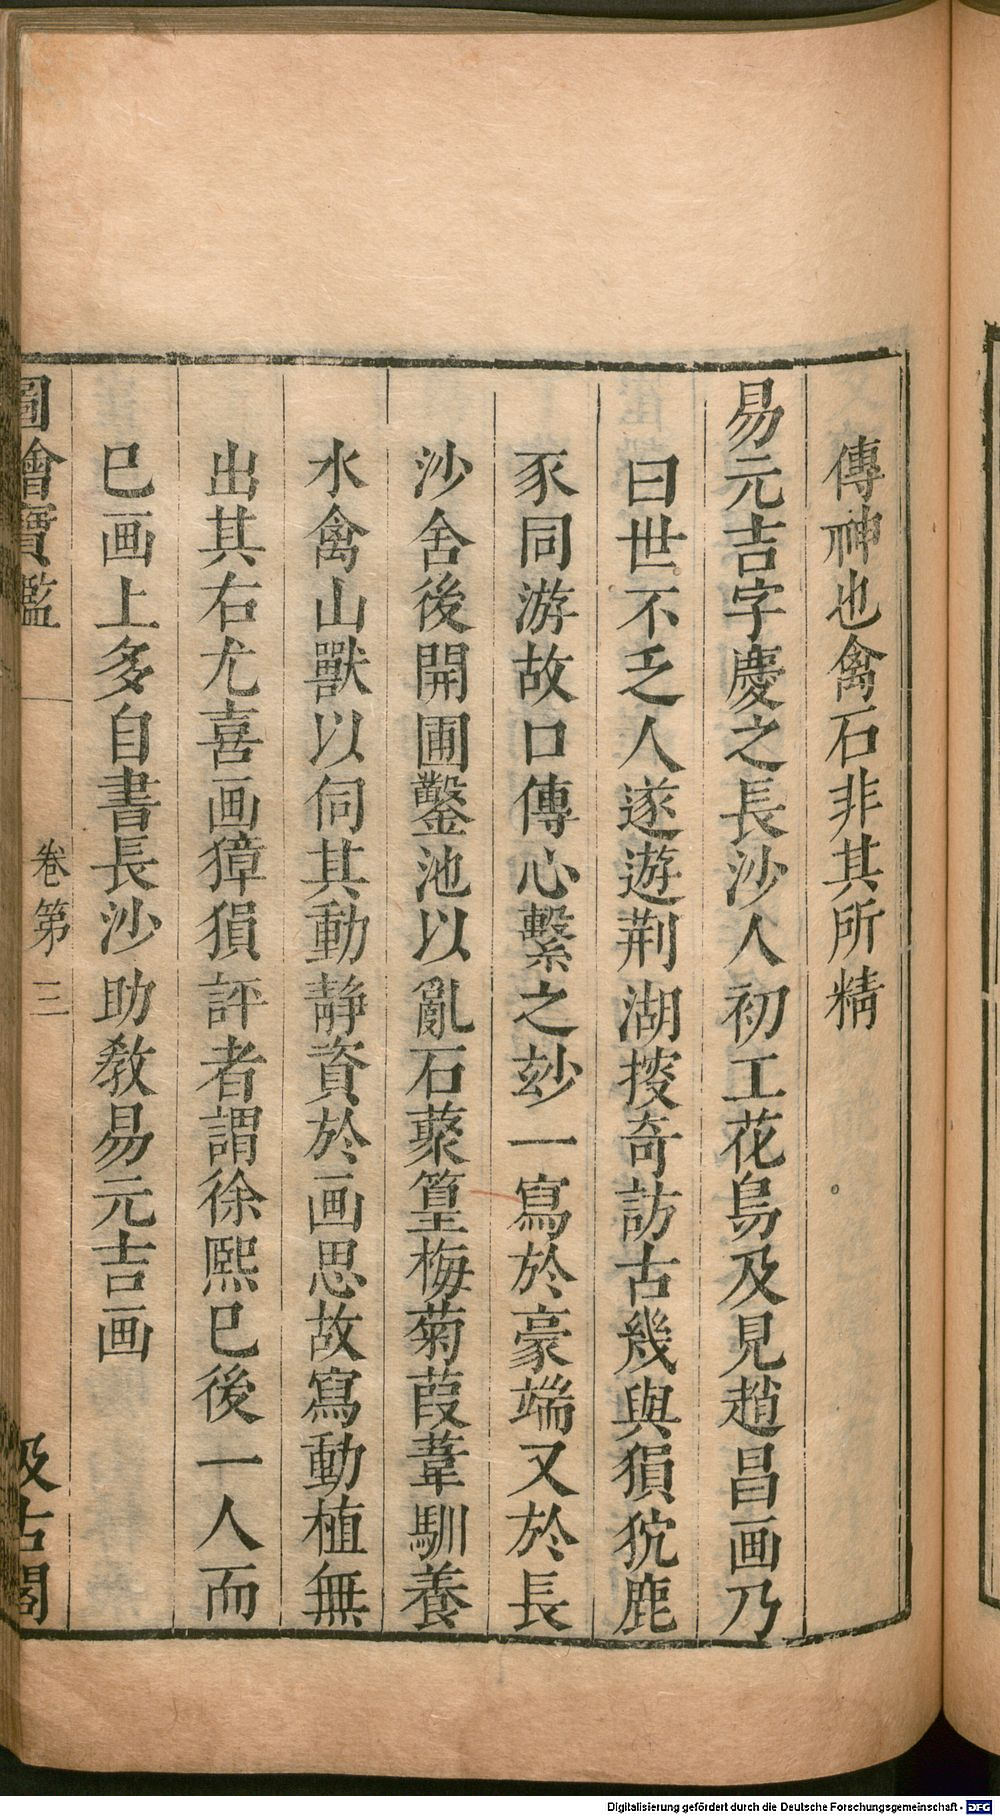 傳神也禽石非其所精
易元吉字慶之長沙人初工花鳥及見趙昌画乃
曰世不乏人遂遊荆湖搜奇訪古幾與猿狖鹿
豕同游故口傳心繫之玅一寫於豪端又於長
沙舍後開圃鑿池以亂石藂篁梅菊葭葦馴養
水禽山獸以伺其動靜資於画思故寫動植無
出其右尤喜画獐猿評者謂徐熙巳後一人而
巳画上多自書長沙助教易元吉画
圖繪寶鑑
卷第三
汲古閣
Digitalisierung gefördert durch die Deutsche Forschungsgemeinschaft - DFG